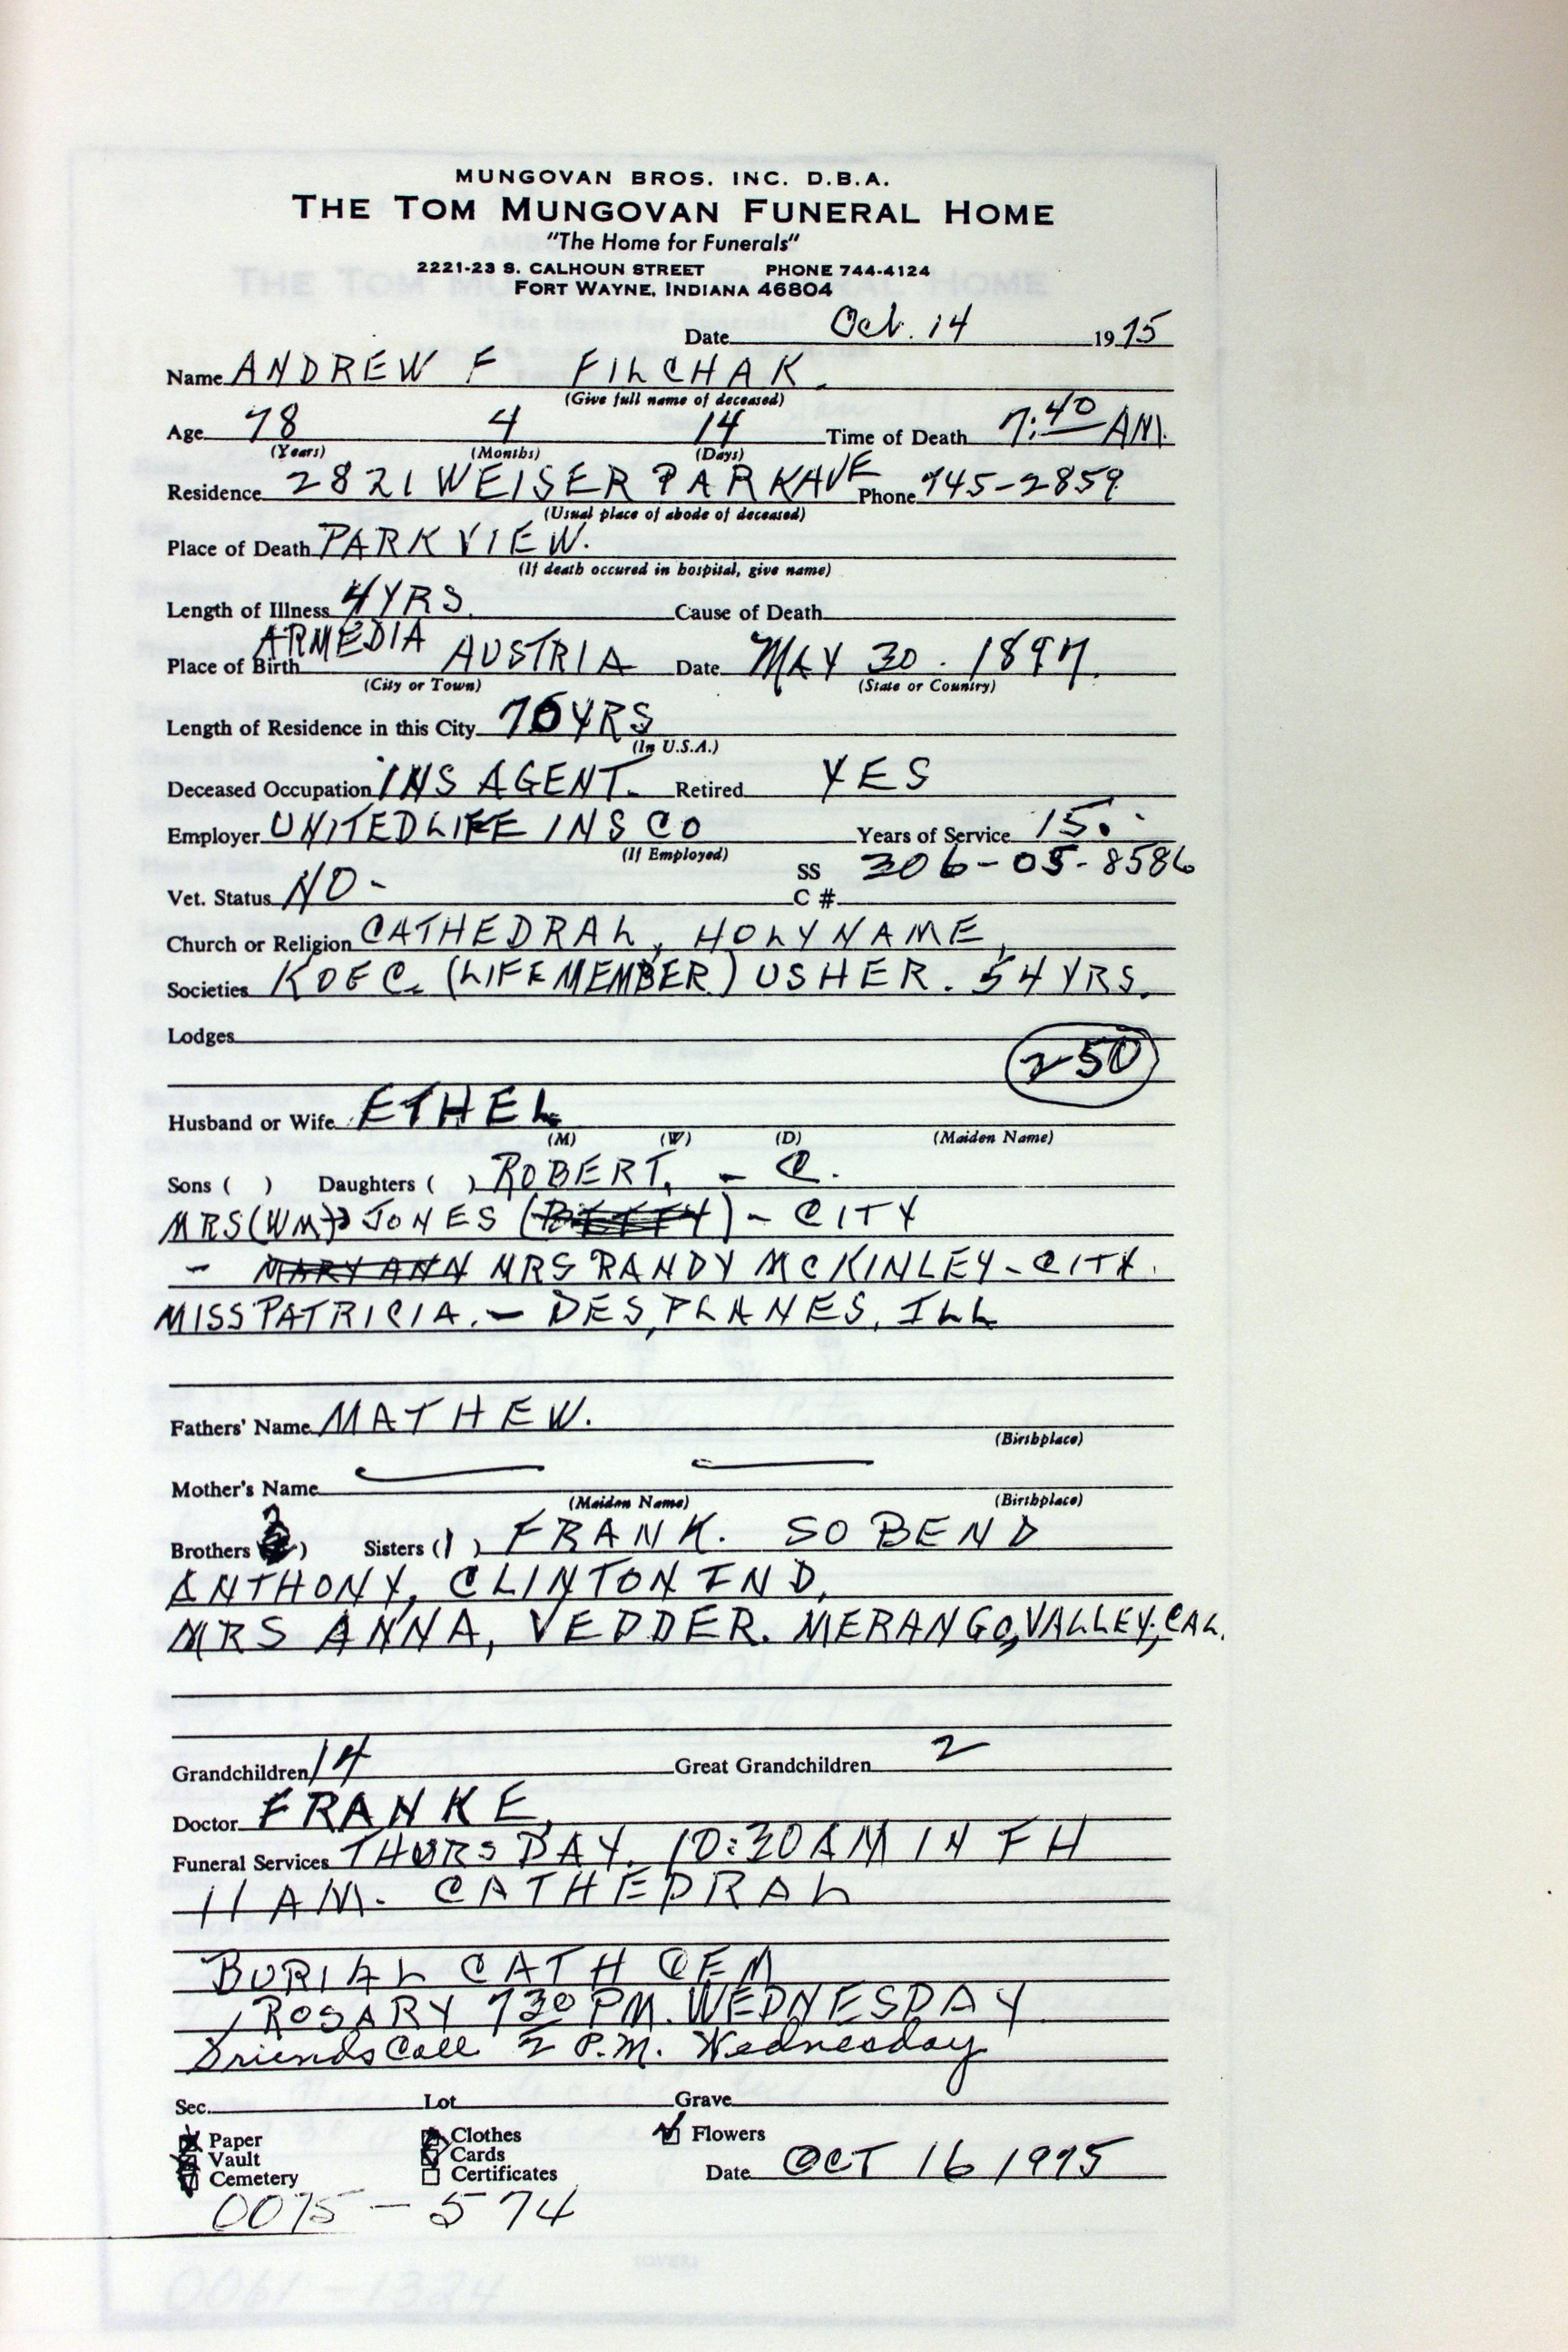 MUNGOVAN BROS. INC. D.B.A.
THE TOM MUNGOVAN FUNERAL HOME
"The Home for Funerals"
2221-23 S. CALHOUN STREET PHONE 744-4124
FORT WAYNE, INDIANA 46804
Date Oct. 14 1975
Name ANDREW F FILCHAK.
(Give full name of deceased)
Age 78 4 14 Time of Death 7:40 AM.
(Years) (Months) (Days)
Residence 2821 WEISER PARK AVE Phone 745-2859
(Usual place of abode of deceased)
Place of Death PARKVIEW.
(If death occured in hospital, give name)
Length of Illness 4 YRS. Cause of Death
Place of Birth ARMEDIA AUSTRIA Date MAY 30. 1897.
(City or Town) (State or Country)
Length of Residence in this City 76 YRS
(In U.S.A.)
Deceased Occupation INS AGENT. Retired YES
Employer UNITED LIFE INS CO Years of Service 15.
(If Employed)
SS 306-05-8586
Vet. Status NO - C #
Church or Religion CATHEDRAL, HOLY NAME,
Societies K OF C. (LIFE MEMBER) USHER. 54 YRS.
Lodges
250
Husband or Wife ETHEL
(M) (W) (D) (Maiden Name)
Sons ( ) Daughters ( ) ROBERT. - C.
MRS (WM) JONES (BETTY) - CITY
- MARY ANN MRS RANDY MCKINLEY - CITY.
MISS PATRICIA. - DES, PLANES, ILL
Fathers' Name MATHEW.
(Birthplace)
Mother's Name
(Maiden Name) (Birthplace)
Brothers ( ) Sisters (1) FRANK. SO BEND
ANTHONY, CLINTON IND,
MRS ANNA, VEDDER. MERANGO, VALLEY, CAL.
Grandchildren 14 Great Grandchildren 2
Doctor FRANKE,
Funeral Services THURSDAY. 10:30 AM IN FH
11 AM. CATHEDRAL
BURIAL CATH CEM
ROSARY 730 PM. WEDNESDAY
Friends Call 2 P.M. Wednesday
Sec. Lot Grave
Paper Clothes Flowers
Vault Cards
Cemetery Certificates Date OCT 16 1975
0075 - 574
0061 - 1324